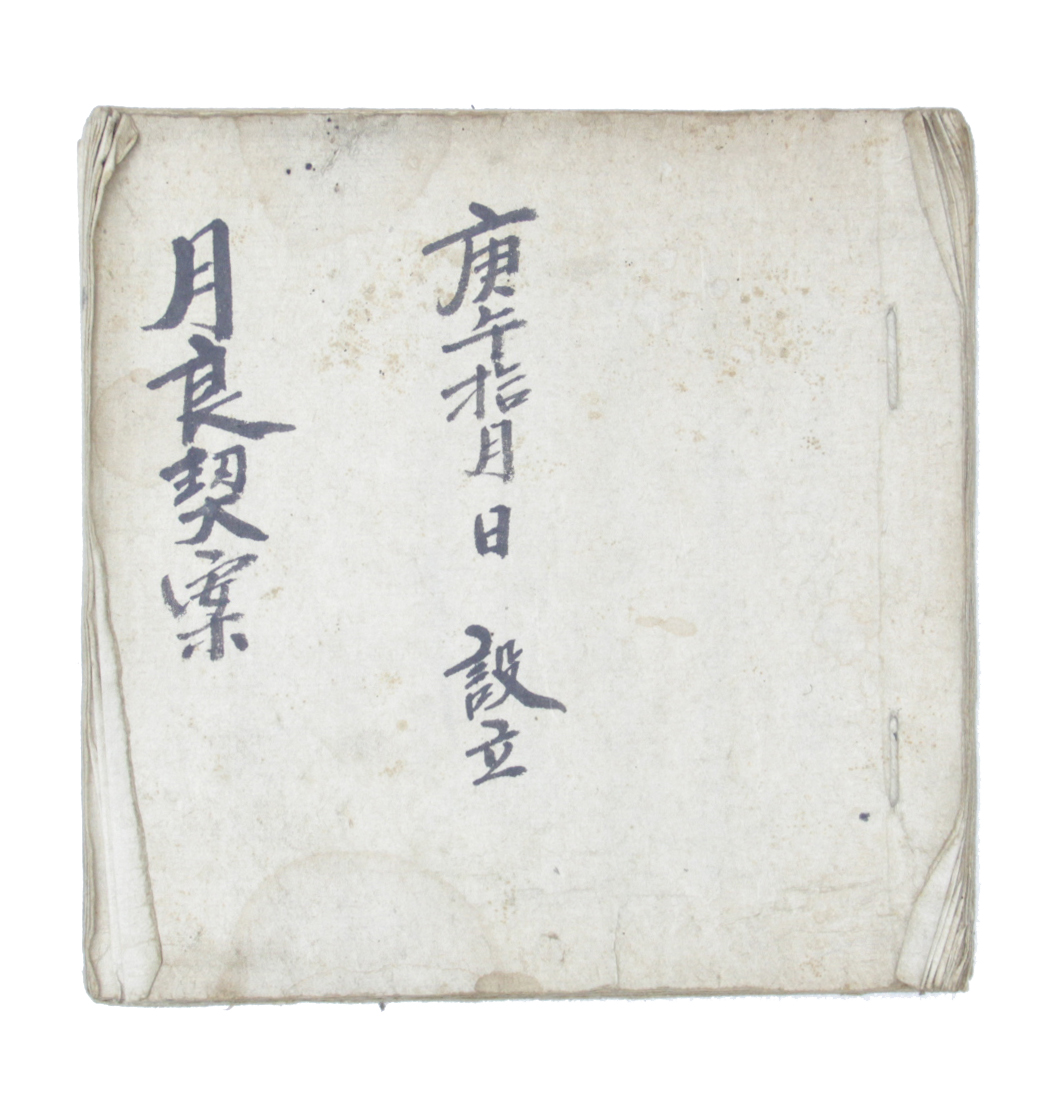 庚午拾月 日 設立
月良契案